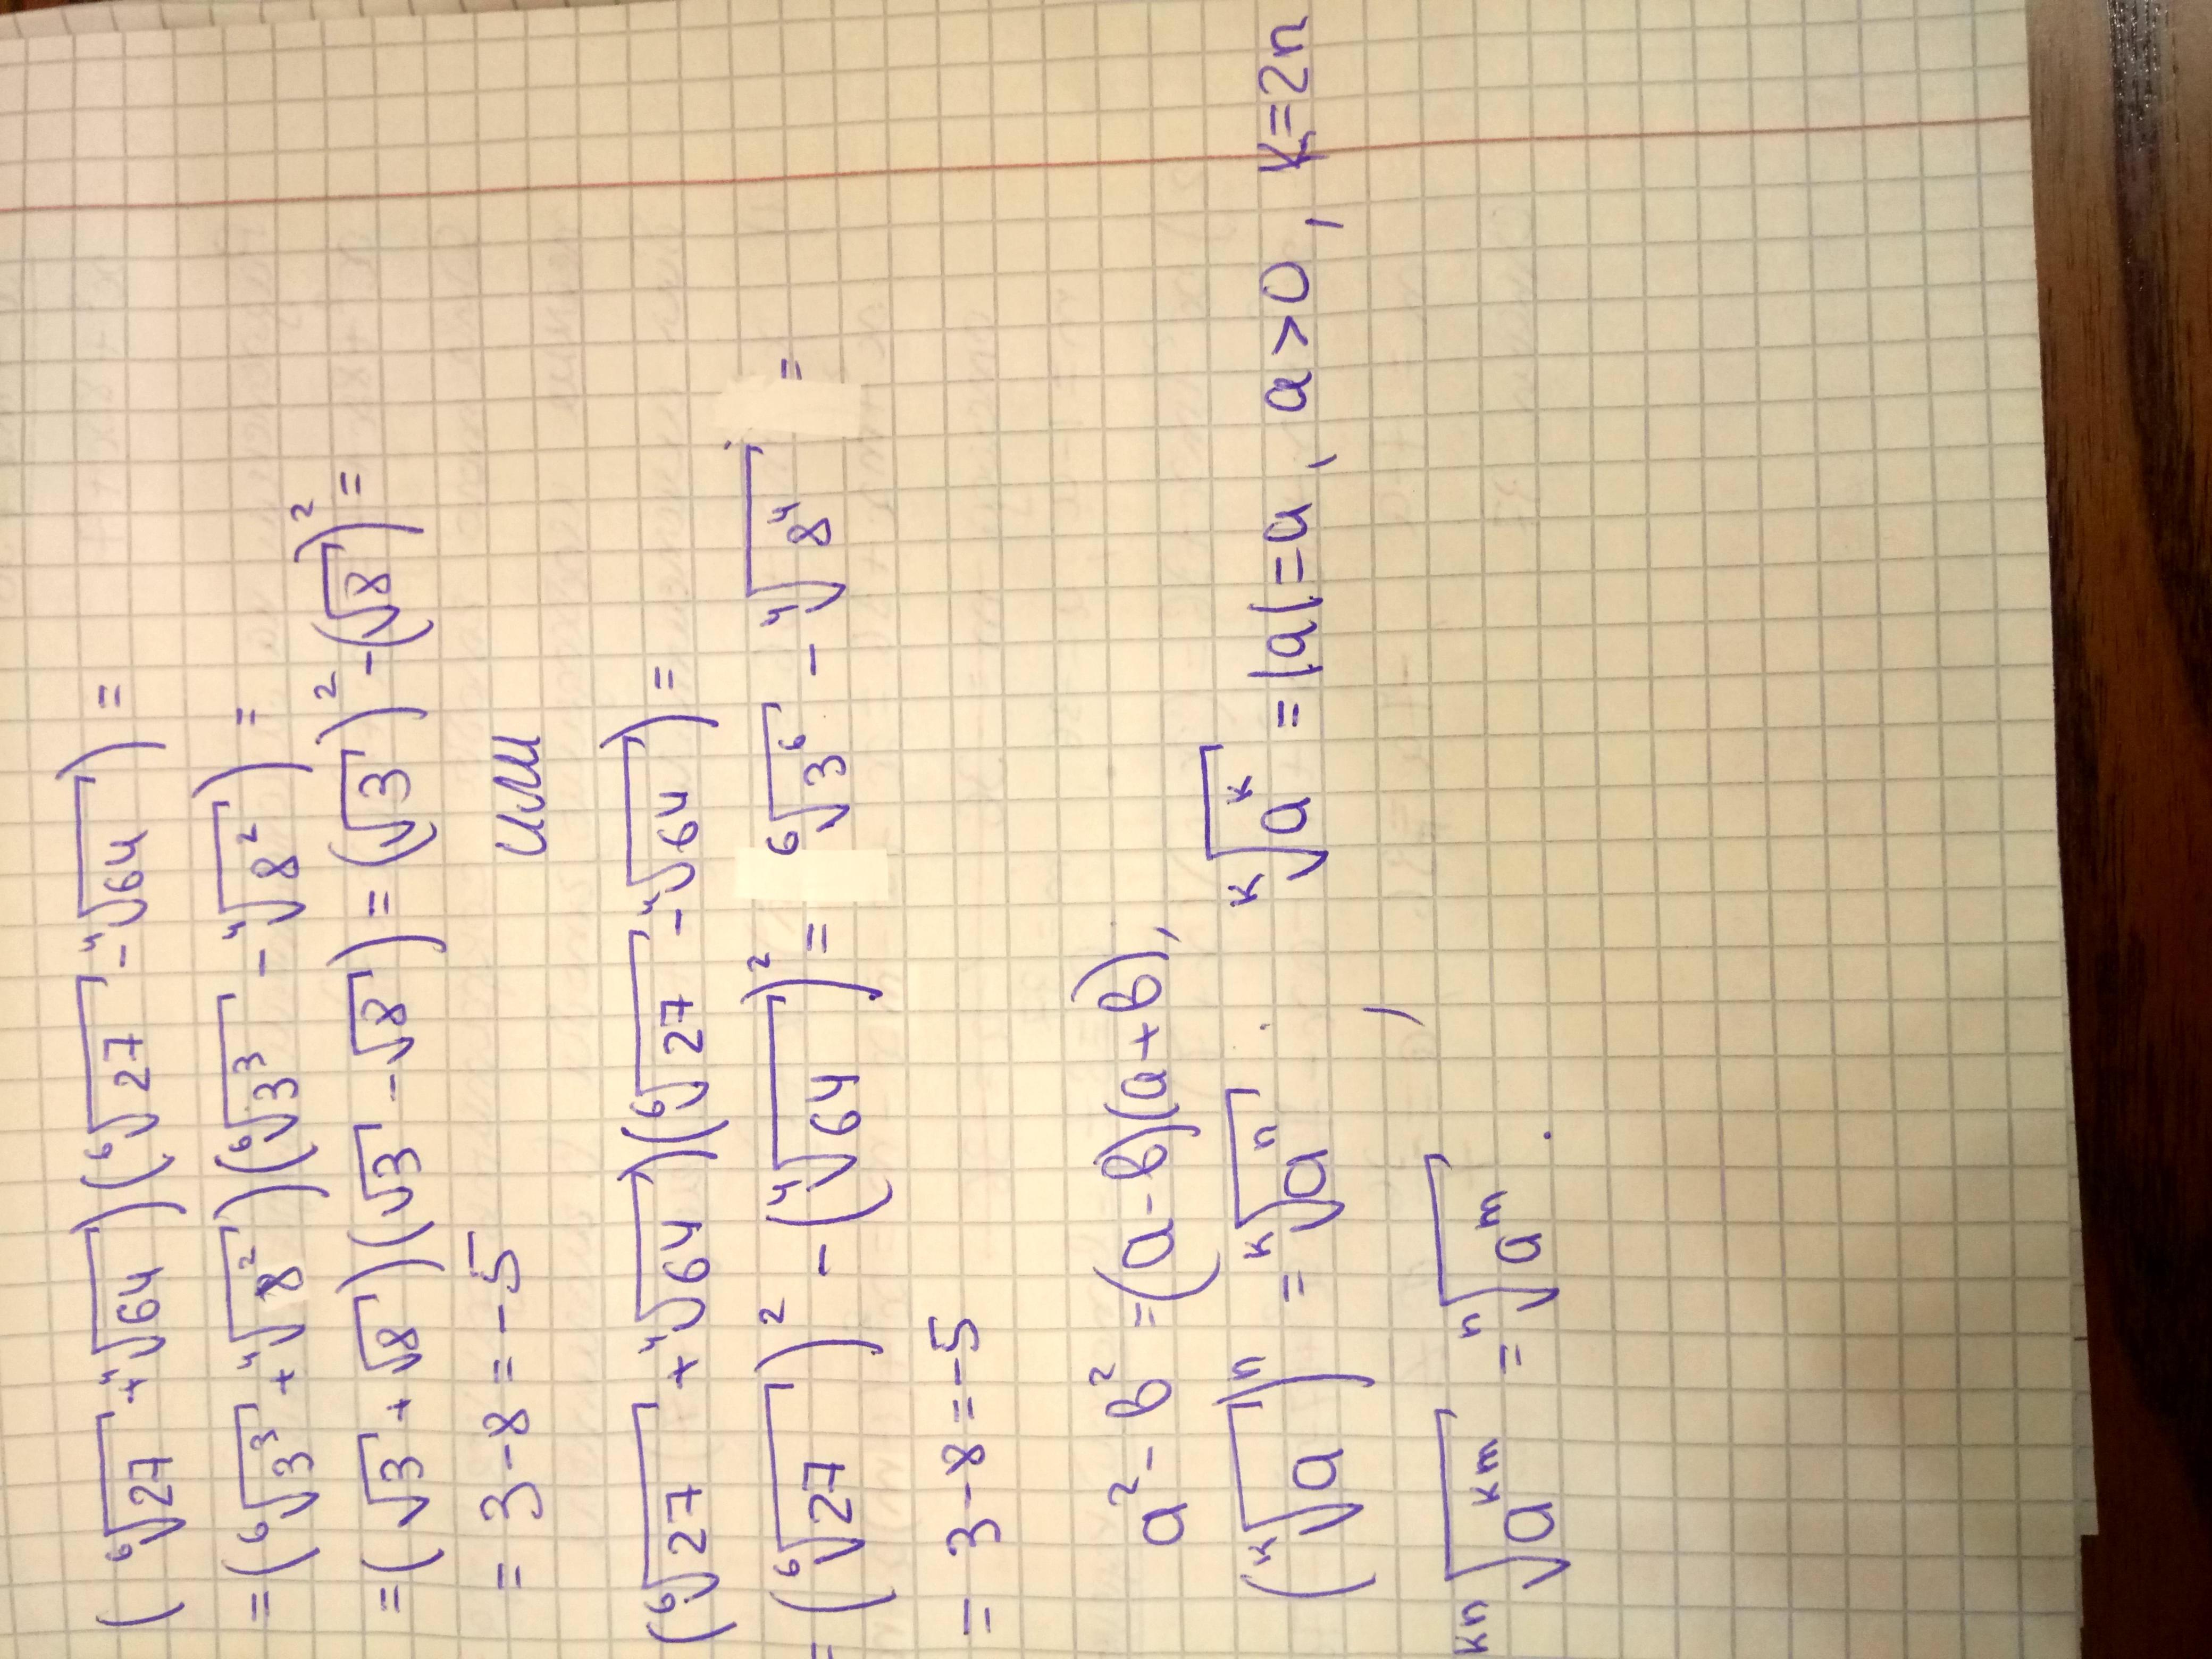 (⁶√27 + ⁴√64)(⁶√27 - ⁴√64) =
= (⁶√3³ + ⁴√8²)(⁶√3³ - ⁴√8²) =
= (√3 + √8)(√3 - √8) = (√3)² - (√8)² =
= 3 - 8 = -5
или
(⁶√27 + ⁴√64)(⁶√27 - ⁴√64) =
= (⁶√27)² - (⁴√64)² = ⁶√3⁶ - ⁴√8⁴ =
= 3 - 8 = -5
a² - b² = (a - b)(a + b),
(ᵏ√a)ⁿ = ᵏ√aⁿ, ᵏ√aᵏ = |a| = a, a > 0, k = 2n
ᵏⁿ√aᵏᵐ = ⁿ√aᵐ.